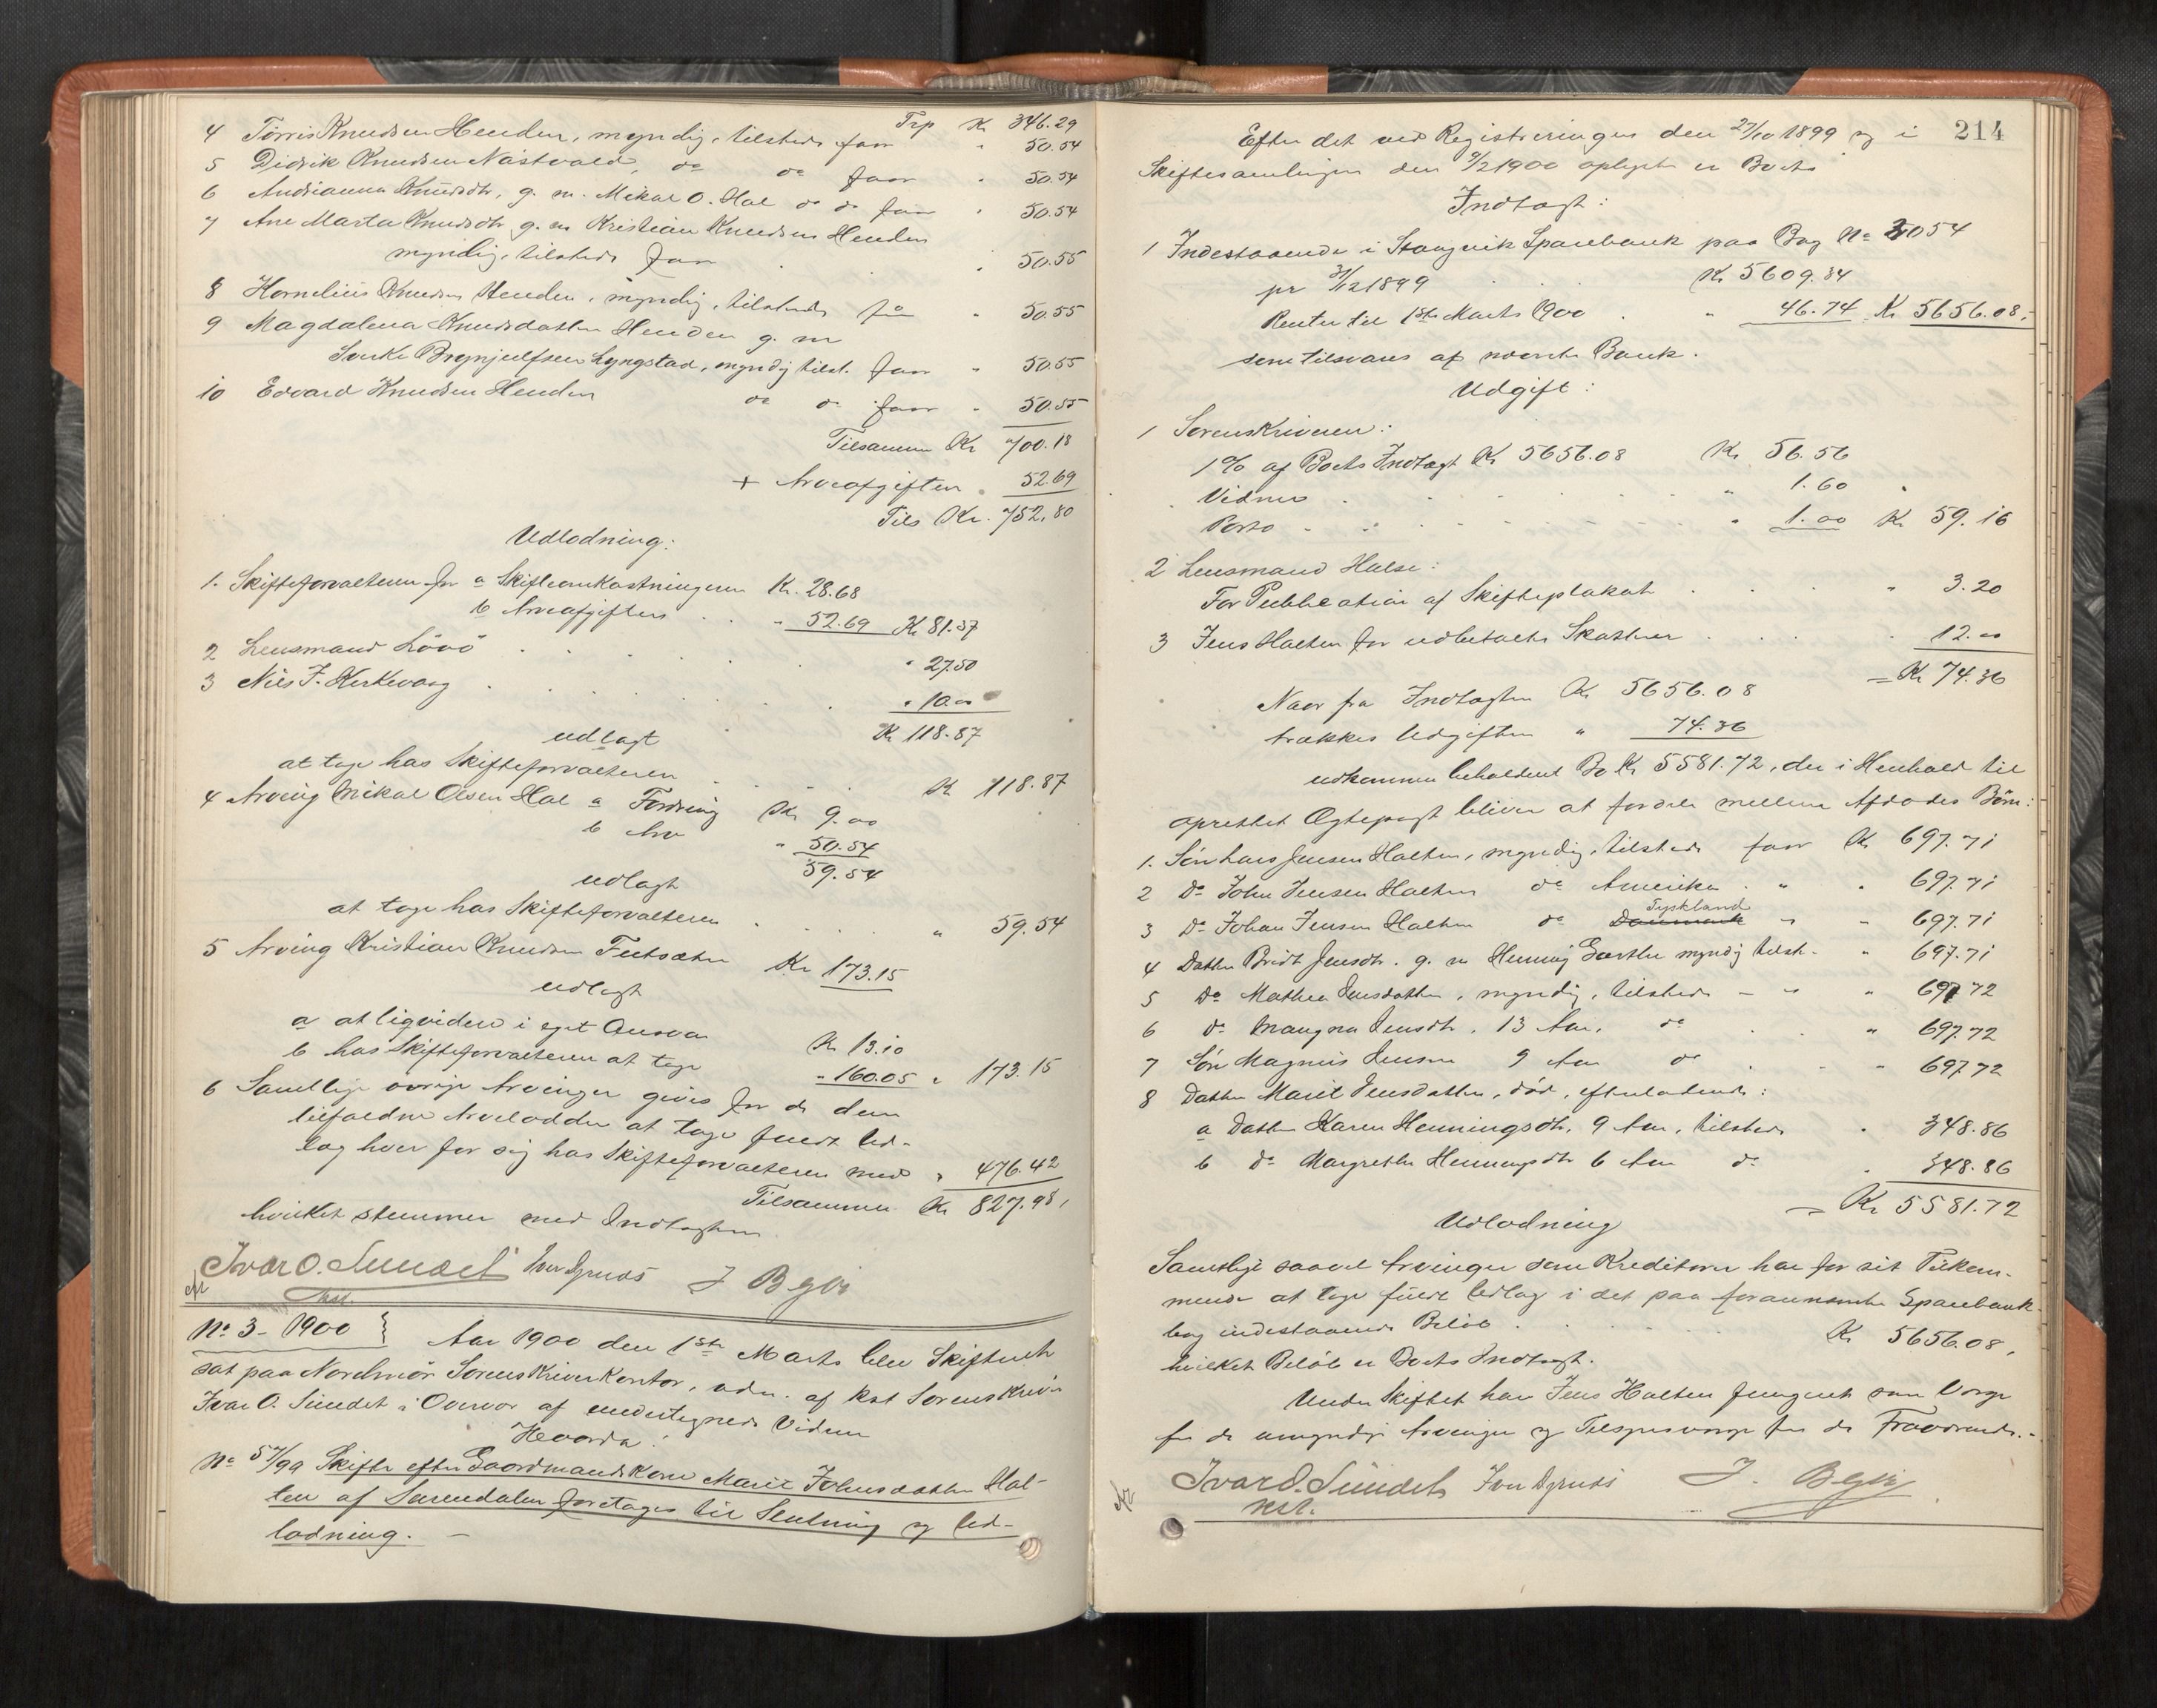 Trp Kr 346.29
4 Tørris Knudsen Henden, myndig, tilstede faar " 50.54
5 Didrik Knudsen Nastvold, do do faar " 50.54
6 Andrianna Knudsdtr, g. m. Mikal O. Hal do do faar " 50.54
7 Ane Marta Knudsdtr g. m Kristian Knudsen Henden
myndig, tilstede faar " 50.55
8 Kornelius Knudsen Henden, myndig, tilstede får " 50.55
9 Magdalena Knudsdatter Henden g. m
Brynjulfsen Lyngstad, myndig tilst. faar " 50.55
10 Edvard Knudsen Henden do do faar " 50.55
Tilsammen Kr 700.18
+ Arveafgiften " 52.69
Tils Kr. 752.80
Udlodning:
1. Skifteforvalteren for a Skifteomkostningerne Kr. 28.68
b Arveafgiften " 52.69 Kr 81.37
2 Lensmand Lövö " 27.50
3 Nils J. Kirkevaag " 10.00
Kr 118.87
udlagt
at tage hos Skifteforvalteren Kr 118.87
4 Arving Mikal Olsen Hal a Fordring Kr 9.00
b Arv " 50.54
59.54
udlagt
at tage hos Skifteforvalteren " 59.54
5 Arving Kristian Knudsen Kr 173.15
udlagt
a at liqvidere i eget Ansvar Kr 13.10
b hos Skifteforvalteren at tage " 160.05 " 173.15
6 Samtlige øvrige Arvinger gives for de dem
tilfaldne Arvelodder at tage fuldt Ud-
lag hver for sig hos Skifteforvalteren med " 476.42
Tilsammen Kr 827.98,
hvilket stemmer med Indtægten.
Ivar O. Sundet J Bgio
kst.
No 3 - 1900 } Aar 1900 den 1ste Marts blev Skifteret
sat paa Nordmör Sorenskriverkontor, adm. af kst Sorenskriver
Ivar O. Sundet i Overvær af undertegnede Vidner
Hvorda:
No 57/99 Skifte efter Gaardmandskone Marit Johnsdatter Hal-
ten af Surendalen foretages til Slutning og Ud-
lodning. —
214
Efter det ved Registreringen den 27/10 1899 og i
Skiftesamlingen den 9/2 1900 oplyste er Boets
Indtægt:
1 Indestaaende i Stangvik Sparebank paa Bog No 2054
pr 31/12 1899 Kr 5609.34
Renter til 1ste Marts 1900 " 46.74 Kr 5656.08,
som tilsvares af nævnte Bank.
Udgift:
1 Sorenskriveren:
1% af Boets Indtægt Kr 5656.08 Kr 56.56
Vidner " 1.60
Porto " 1.00 Kr 59.16
2 Lensmand Halse:
For Publication af Skifteplakat " 3.20
3 Jens Halten for udbetalte Skatter " 12.00
= Kr 74.36
Naar fra Indtægten Kr 5656.08
trækkes Udgiften " 74.36
udkommer beholdent Bo Kr 5581.72, der i Henhold til
oprettet Ægtepagt bliver at fordele mellem Afdødes Børn:
1. Søn Lars Jensen Halten, myndig, tilstede faar Kr 697.71
2 Do John Jensen Halten do Amerika " " 697.71
3 Do Johan Jensen Halten do Danmark Tyskland " " 697.71
4 Datter Jensdtr. g. m Henning myndig tilst. " 697.71
5 Do Mathea Jensdatter, myndig, tilstede — " " 697.72
6 do Magna Jensdtr, 13 Aar, do " 697.72
7 Søn Magnus Jensen 9 Aar do " 697.72
8 Datter Marit Jensdatter, død, efterladende:
a Datter Karen Henningsdtr, 9 Aar, tilstede " 348.86
b do Margrethe Henningsdtr 6 Aar do " 348.86
= Kr 5581.72
Udlodning
Samtlige saavel Arvinger som Kreditorer har for sit Tilkom-
mende at tage fuldt Udlag i det paa forannævnte Sparebank-
bog indestaaende Beløb Kr 5656.08,
hvilket Beløb er Boets Indtægt.
Under Skiftet har Jens Halten fungeret som Verge
for de umyndige Arvinger og Tilsynsverge for de Fraværende.-
Ivar O. Sundet J. Bgio
kst.